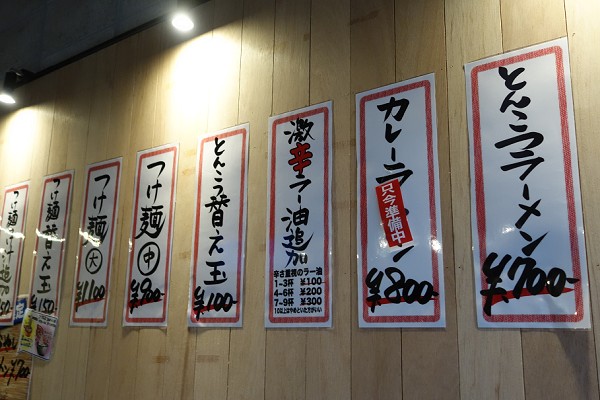 とんこつラーメン
¥700-
カレーラーメン
只今準備中
¥800-
激辛ラー油追加
辛さ重視のラー油
1-3杯 ¥100
4-6杯 ¥200
7-9杯 ¥300
10以上はやめといた方がいい
とんこつ替え玉
¥100-
つけ麺(中)
¥900-
つけ麺(大)
¥1100
つけ麺替え玉
¥150